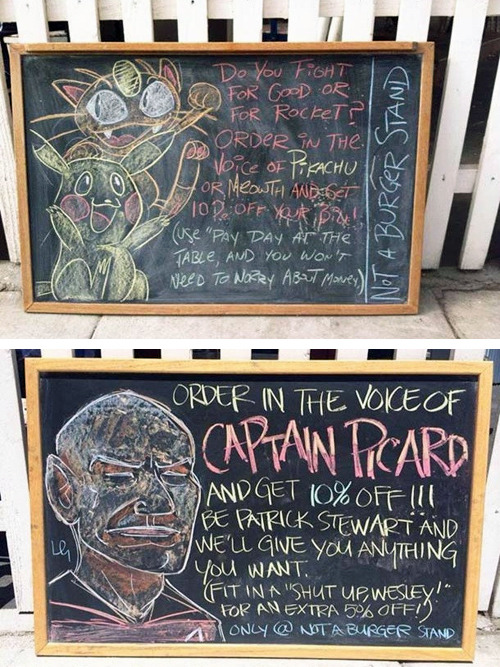 Do You FIGHT
FOR GOOD OR
FOR ROCKET?
ORDER IN THE
VOICE OF PIKACHU
OR MEOWTH AND GET
10% OFF YOUR
(USE "PAY DAY AT THE
TABLE, AND YOU WON'T
NEED TO WORRY ABOUT MONEY)
NOT A BURGER STAND
ORDER IN THE VOICE OF
CAPTAIN PICARD
AND GET 10% OFF!!!
BE PATRICK STEWART AND
WE'LL GIVE YOU ANYTHING
YOU WANT.
(FIT IN A "SHUT UP, WESLEY!"
FOR AN EXTRA 5% OFF!)
ONLY @ NOT A BURGER STAND